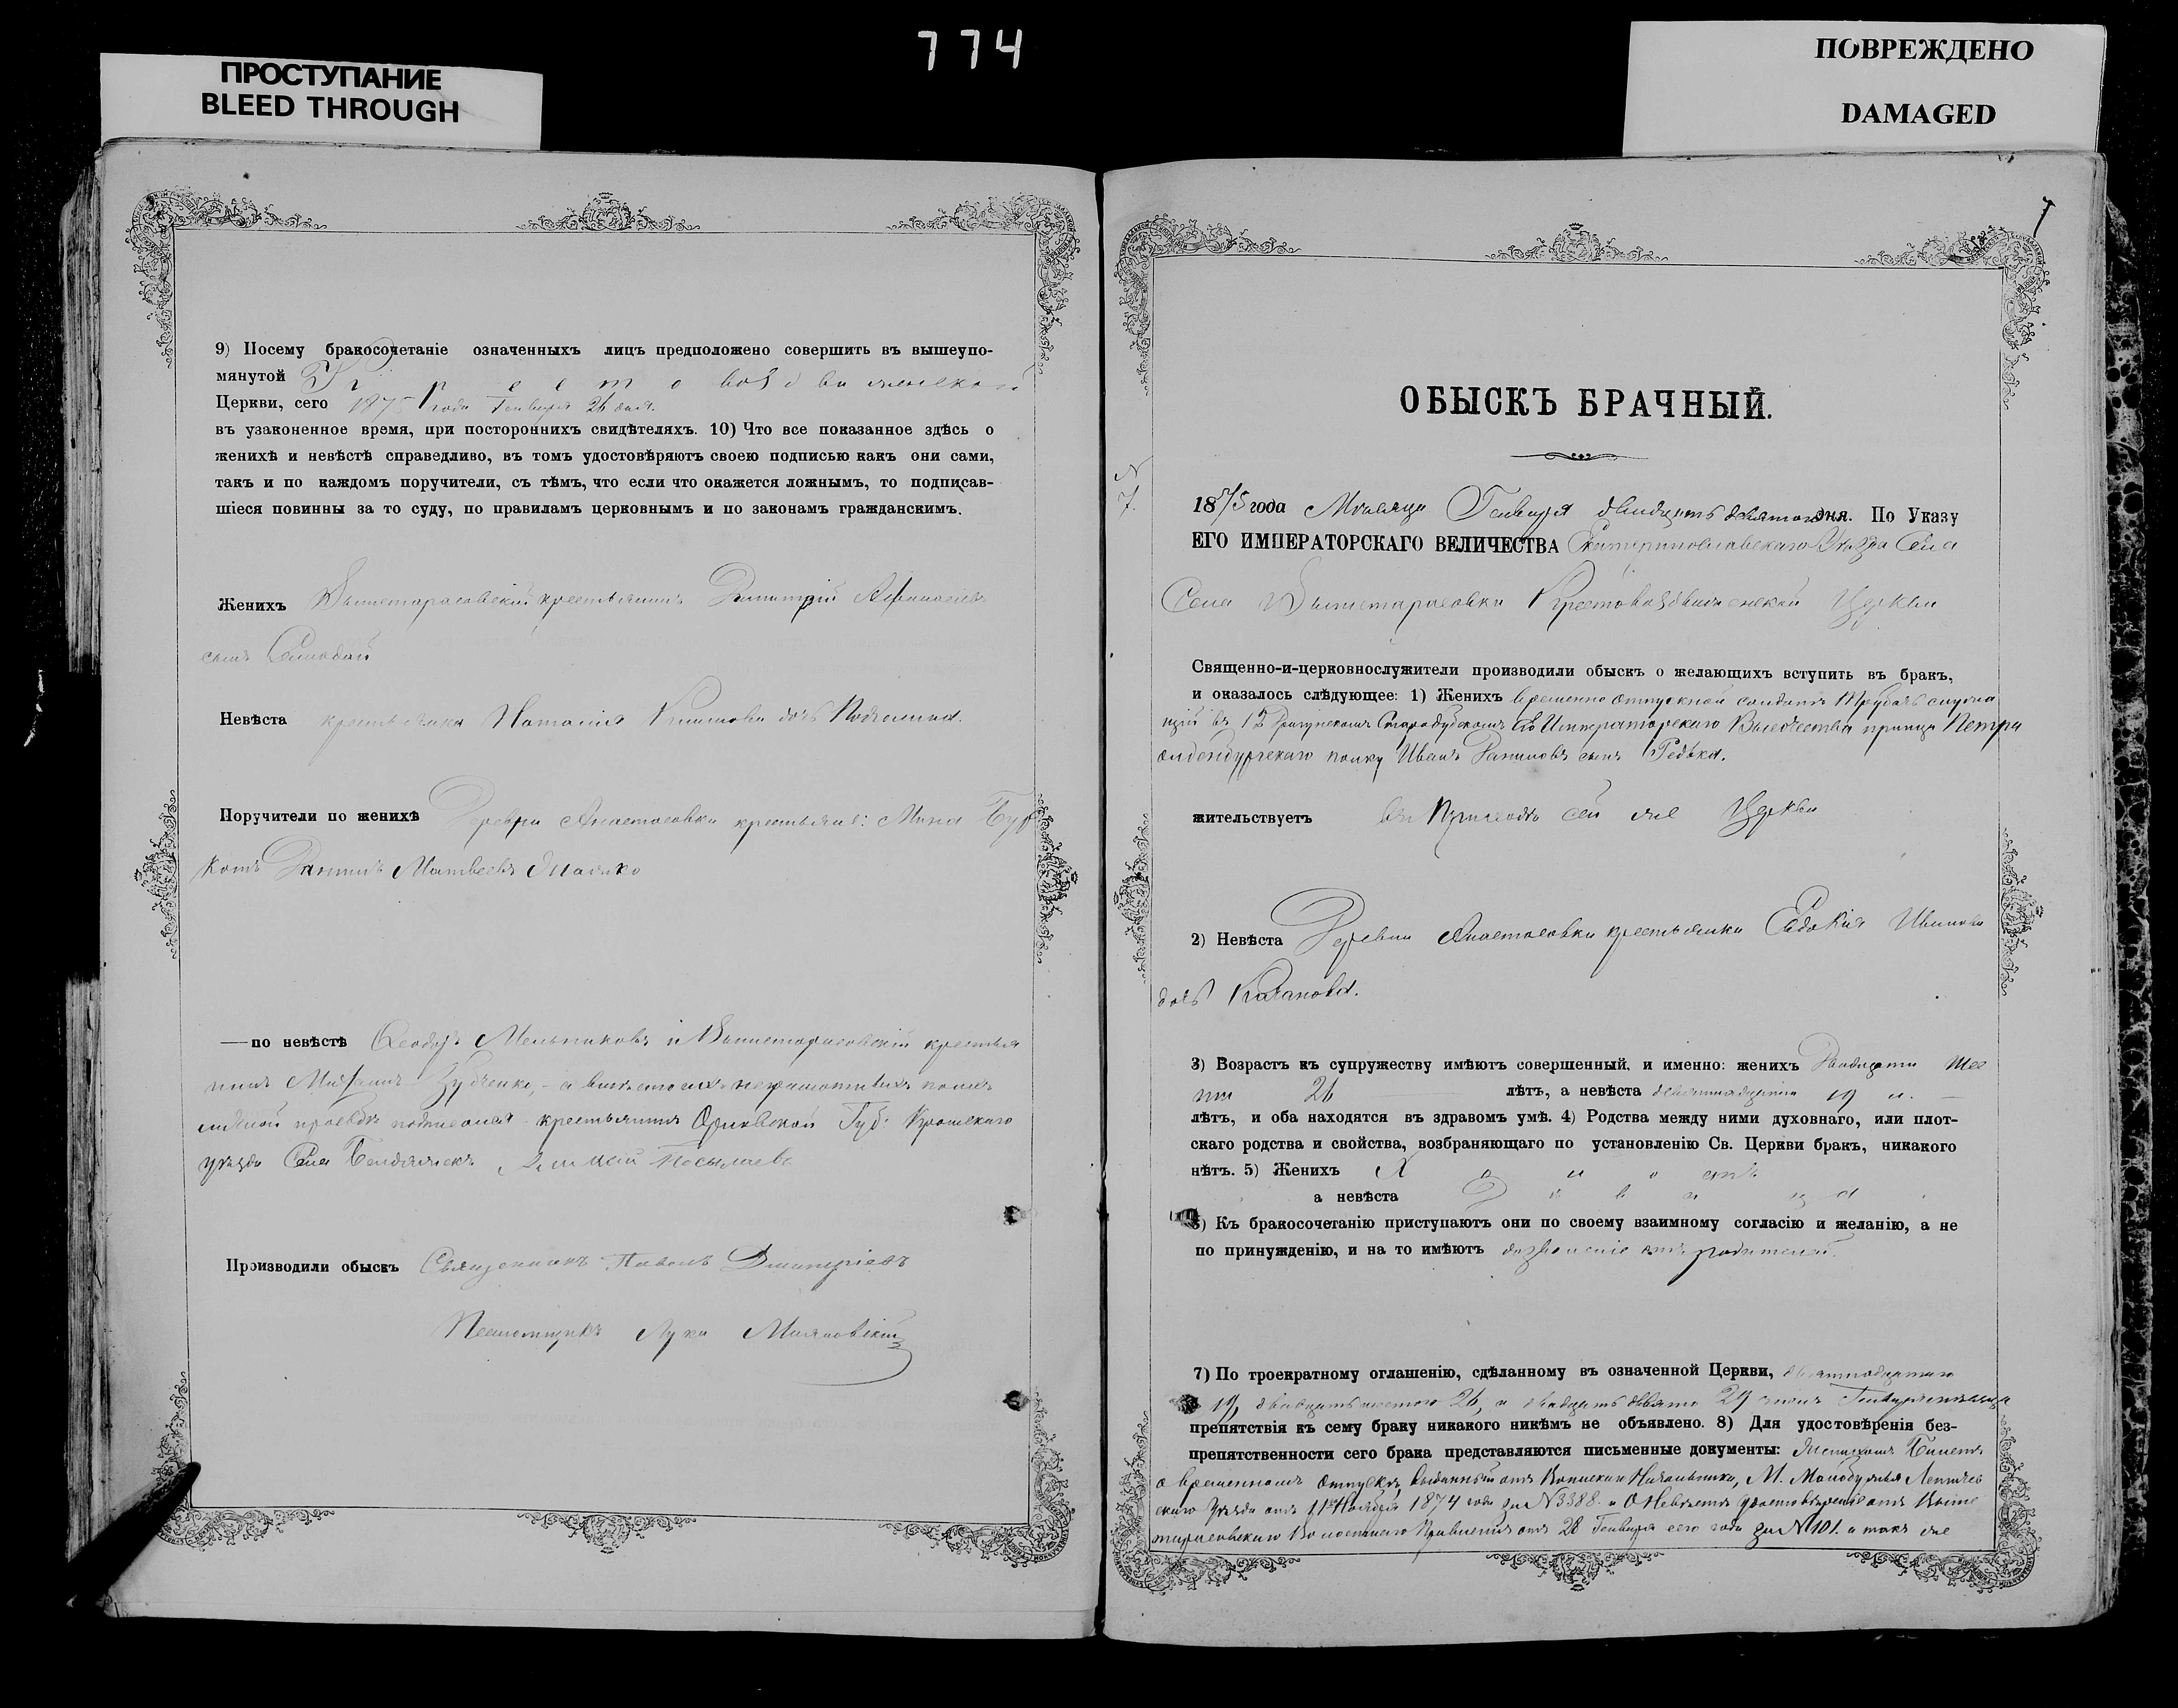 774
ПРОСТУПАНИЕ
BLEED THROUGH
ПОВРЕЖДЕНО
DAMAGED
9) Посему бракосочетаніе означенныхъ лицъ предположено совершить въ вышеупо-
мянутой Крестовоздвиженской
Церкви, сего 1875 года Генваря 26 дня.
въ узаконенное время, при постороннихъ свидѣтеляхъ. 10) Что все показанное здѣсь о
женихѣ и невѣстѣ справедливо, въ томъ удостовѣряютъ своею подписью какъ они сами,
такъ и по каждомъ поручители, съ тѣмъ, что если что окажется ложнымъ, то подписав-
шіеся повинны за то суду, по правиламъ церковнымъ и по законамъ гражданскимъ.
Женихъ Вышетарасовскій крестьянинъ Димитрій Афанасіевъ
сынъ
Невѣста крестьянка Наталія Климова дочь
Поручители по женихѣ Деревни Анастасовки крестьяне: Мина
Даніилъ Матвеевъ
— по невѣстѣ Ѳеодоръ Мельниковъ и Вышетарасовскій крестья
нинъ Михаилъ а вместо ихъ неграмотныхъ по ихъ
личной прозьбѣ подписался крестьянинъ Орловской Губ: Кромскаго
уѣзда Села
Производили обыскъ Священникъ Павелъ Дмитріевъ
Псаломщикъ Лука
7
ОБЫСКЪ БРАЧНЫЙ.
N
7.
1875 года Мѣсяца Генваря двадцать девятого дня. По Указу
ЕГО ИМПЕРАТОРСКАГО ВЕЛИЧЕСТВА Екатеринославскаго Уѣзда Села
Села Вышетарасовки Крестовоздвиженской Церкви
Священно-и-церковнослужители производили обыскъ о желающихъ вступить въ бракъ,
и оказалось слѣдующее: 1) Женихъ временно отпускной солдатъ Трубачъ служа
щій въ 12 Драгунскомъ Стародубскомъ Его Императорскаго Высочества принца Петра
олденбургскаго полку Иванъ Даниловъ сынъ Редька.
жительствуетъ въ Приходѣ сей же Церкви
2) Невѣста Деревни Анастасовки крестьянка Евдокія Иванова
дочь Качанова.
3) Возрастъ къ супружеству имѣютъ совершенный, и именно: женихъ Двадцати шес
ти 26 лѣтъ, а невѣста девятнадцати 19 л.
лѣтъ, и оба находятся въ здравомъ умѣ. 4) Родства между ними духовнаго, или плот-
скаго родства и свойства, возбраняющаго по установленію Св. Церкви бракъ, никакого
нѣтъ. 5) Женихъ Холостъ
а невѣста Дѣвица
6) Къ бракосочетанію приступаютъ они по своему взаимному согласію и желанію, а не
по принужденію, и на то имѣютъ дозволеніе отъ родителей.
7) По троекратному оглашенію, сдѣланному въ означенной Церкви, девятнадцатаго
19, двадцать шестого 26, и двадцать девято 29 числъ Генваря мѣсяца
препятствія къ сему браку никакого никѣмъ не объявлено. 8) Для удостовѣренія без-
препятственности сего брака представляются письменные документы: Женихомъ Билетъ
о временномъ отпускѣ, выданный отъ Воинскаго Начальника,
уѣзда отъ 11 Ноября 1874 года за N 3388. и О Невѣстѣ удостовѣреніе отъ Выше
тарасовскаго Волостнаго Правленія отъ 28 Генваря сего года за N 101. а такъ же